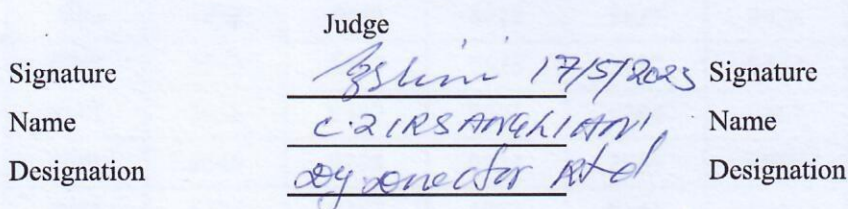 Judge
Signature 17/5/2023 Signature
Name C.ZIRSANGLIANI Name
Designation Dy Director Rtd Designation